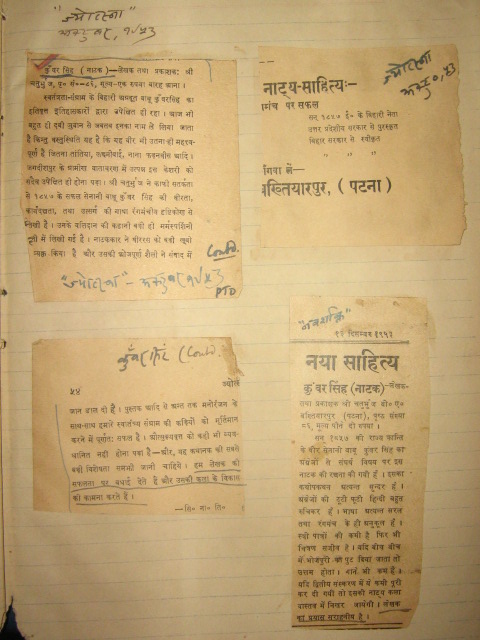 "ज्योत्स्ना"
अक्टूबर, १९५३
कुंवर सिंह (नाटक)—लेखक तथा प्रकाशक: श्री
चतुर्भुज, पृ० सं०—८६, मूल्य-एक रुपया बारह आना।
स्वतंत्रता-संग्राम के बिहारी अग्रदूत बाबू कुंवरसिंह का
इतिवृत्त इतिहासकारों द्वारा उपेक्षित ही रहा। आज भी
बहुत ही दबी जुबान से अक्सर इनका नाम ले लिया जाता
है किन्तु वस्तुस्थिति यह है कि यह वीर भी उतना ही महत्व-
पूर्ण है जितना तांतिया, लक्ष्मीबाई, नाना फड़नवीस आदि।
जगदीशपुर के ग्रामीण वातावरण में उत्पन्न इस केशरी को
सदैव उपेक्षित ही होना पड़ा। श्री चतुर्भुज ने काफी सतर्कता
से १८५७ के सफल सेनानी बाबू कुंवर सिंह की वीरता,
कार्यदक्षता, तथा उत्सर्ग की गाथा रंगमंचीय दृष्टिकोण से
लिखी है। उनके बलिदान की कहानी बड़ी ही मर्मस्पर्शिनी
में लिखी गई है। नाटककार ने वीररस को बड़ी खूबी
व्यक्त किया है और उसकी ओजपूर्ण शैली ने संवाद में
Contd.
"ज्योत्स्ना" - अक्टूबर १९५३
PTO
ज्योत्स्ना
अक्टू०, ५३
नाट्य-साहित्य:-
गमंच पर सफल
सन् १८५७ ई० के बिहारी नेता
उत्तर प्रदेशीय सरकार से पुरस्कृत
बिहार सरकार से स्वीकृत
" " "
बख्तियारपुर, (पटना)
कुँवर सिंह (Contd.
५४
ज्योत्स्
जान डाल दी है। पुस्तक आदि से अन्त तक मनोरंजन के
साथ-साथ हमारे स्वातंत्र्य संग्राम की कड़ियों को मूर्तिमान
करने में पूर्णतः सफल है। औत्सुक्यवृत्त को कहीं भी व्यव-
धानित नहीं होना पड़ा है—और, यह कथानक की सबसे
बड़ी विशेषता समझी जानी चाहिये। हम लेखक को
सफलता पर बधाई देते हैं और उसकी कला के विकास
की कामना करते हैं।
—सि० ना० सि०
"नवशक्ति"
१३ दिसम्बर १९५३
नया साहित्य
कुंवर सिंह (नाटक) लेखक-
तथा प्रकाशक श्री चतुर्भुज बी०ए०
बख्तियारपुर (पटना), पृष्ठ संख्या
८६, मूल्य पौने दो रुपया।
सन् १८५७ की राज्य क्रान्ति
के वीर सेनानी बाबू कुंवर सिंह का
अंग्रेजों से संघर्ष विषय पर इस
नाटक की रचना की गयी है। इसका
कथोपकथन अत्यन्त सुन्दर है।
अंग्रेजों की टूटी फूटी हिन्दी बहुत
रुचिकर है। भाषा अत्यन्त सरल
तथा रंगमंच के ही अनुकूल है।
स्त्री पात्रों की कमी है फिर भी
चित्रण सजीव है। यदि बीच बीच
में भोजपुरी का पुट दिया जाता तो
उत्तम होता। गाने भी कम हैं।
यदि द्वितीय संस्करण में ये कमी पूरी
कर दी गयी तो इसकी नाट्य कला
वास्तव में निखर जायेगी। लेखक
का प्रयास सराहनीय है।